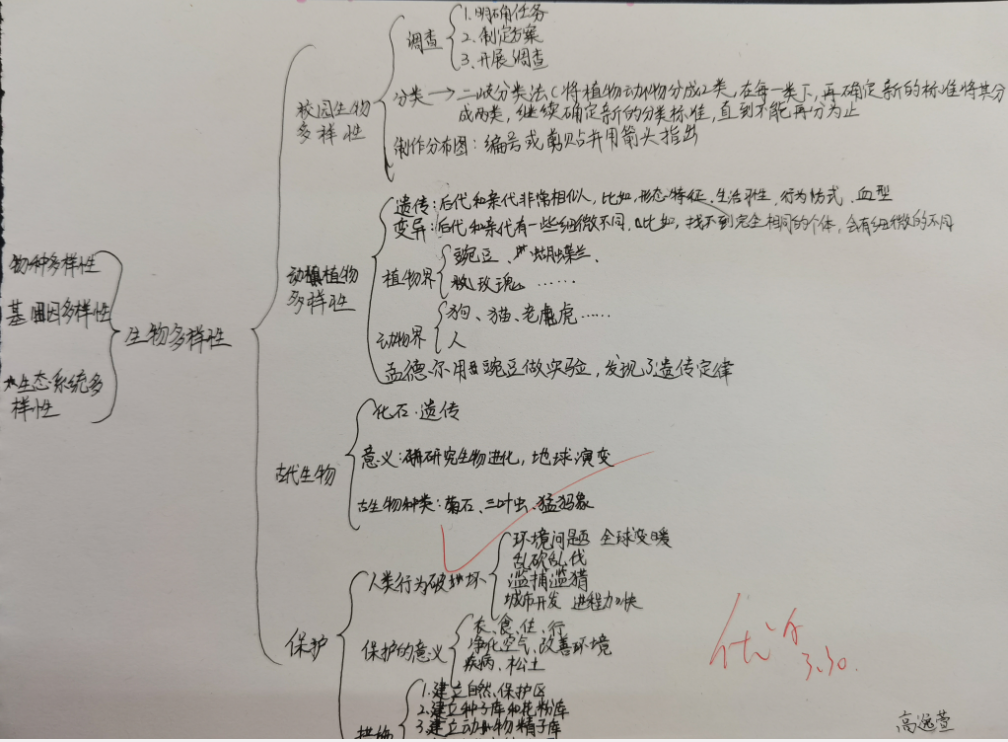 调查
1.明确任务
2.制定方案
3.开展调查
校园生物
多样性
分类→二歧分类法(将植物动物分成2类,在每一类下,再确定新的标准将其分
成两类,继续确定新的分类标准,直到不能再分为止
制作分布图:编号或剪贴并用箭头指出
遗传:后代和亲代非常相似,比如,形态特征、生活习性,行为方式、血型
变异:后代和亲代有一些细微不同,比如,找不到完全相同的个体,会有细微的不同
物种多样性
基因多样性
生态系统多
样性
生物多样性
动植物
多样性
植物界
豌豆、蝴蝶兰、
玫瑰……
动物界
狗、猫、老虎……
人
孟德尔用豌豆做实验,发现了遗传定律
古代生物
化石·遗传
意义:研究生物进化,地球演变
古生物种类:菊石、三叶虫、猛犸象
保护
人类行为破坏
环境问题 全球变暖
乱砍乱伐
滥捕滥猎
城市开发 进程加快
保护的意义
衣、食、住、行
净化空气、改善环境
疾病、松土
措施
1.建立自然保护区
2.建立种子库和花粉库
3.建立动物精子库
优
3.30.
高逸萱